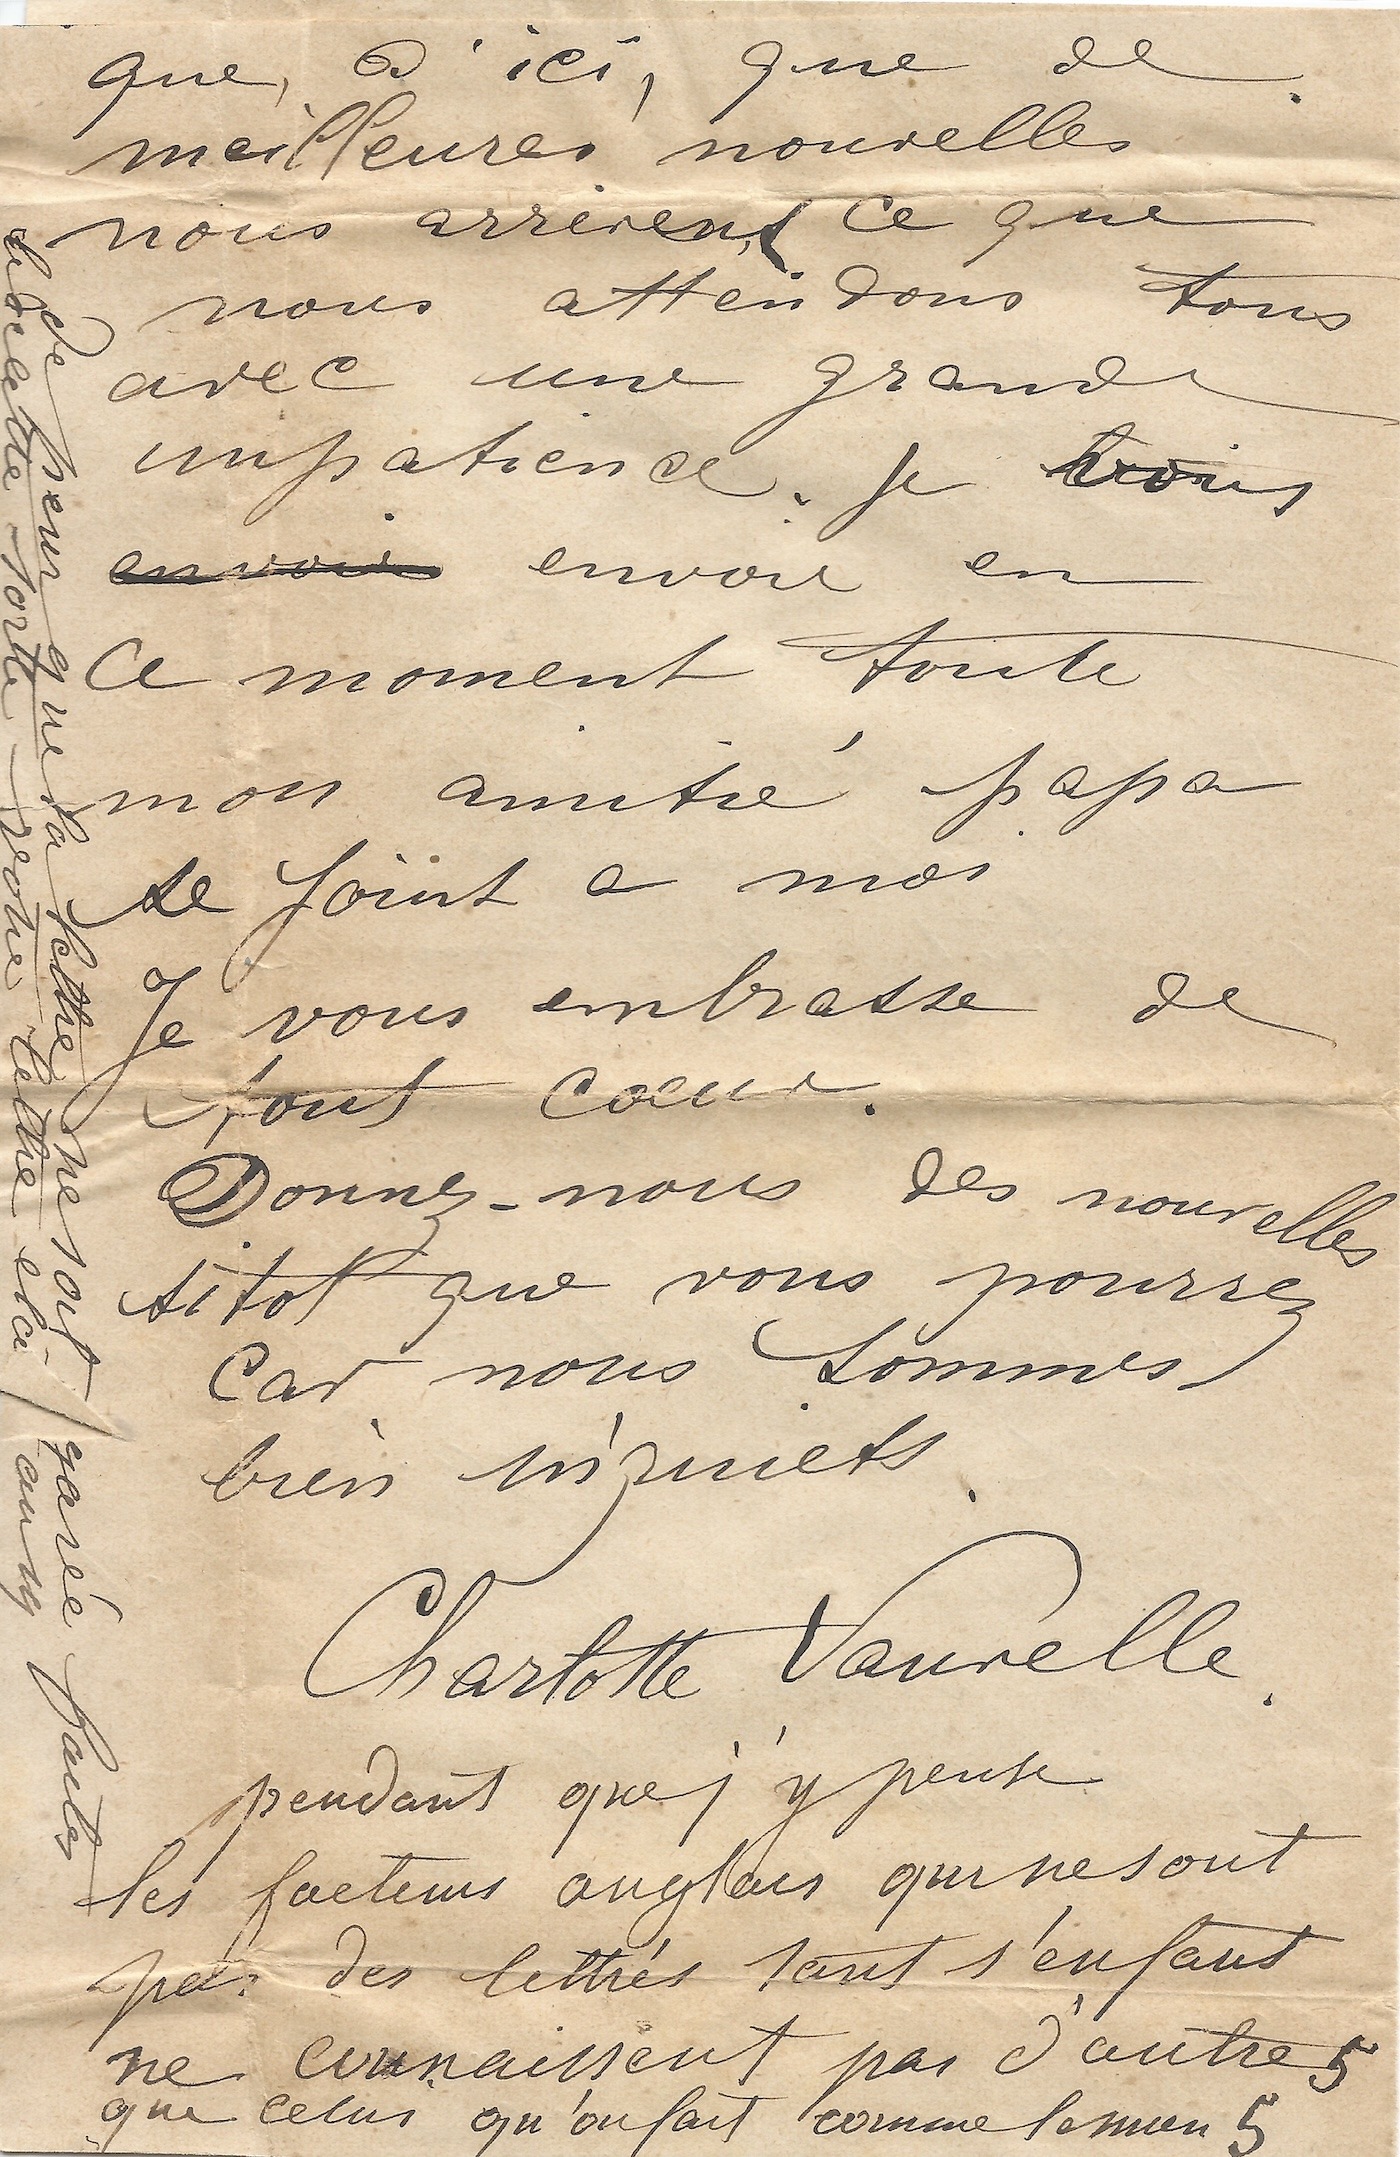 que, d'ici, que de
meilleures nouvelles
nous arrivent ce que
nous attendons tous
avec une grande
impatience. je vous
envoie envoie en
ce moment toute
mon amitié papa
se joint a moi
Je vous embrasse de
tout coeur.
Donnez-nous des nouvelles
sitot que vous pourrez
car nous sommes
bien inquiets.
Charlotte Vauvelle.
pendant que j'y pense
les facteurs anglais qui ne sont
pas des lettrés tant s'en faut
ne connaissent pas d'autre 5
que celui qu'on fait comme le mien 5
de peur que la lettre ne soit garée faites
de cette sorte votre lettre ela